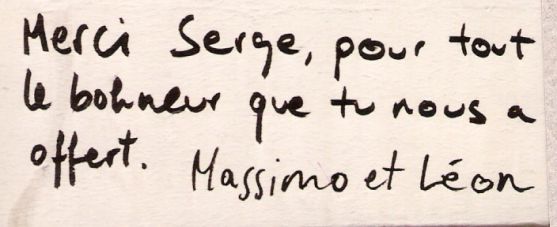 Merci Serge, pour tout
le bohneur que tu nous a
offert. Massimo et Léon